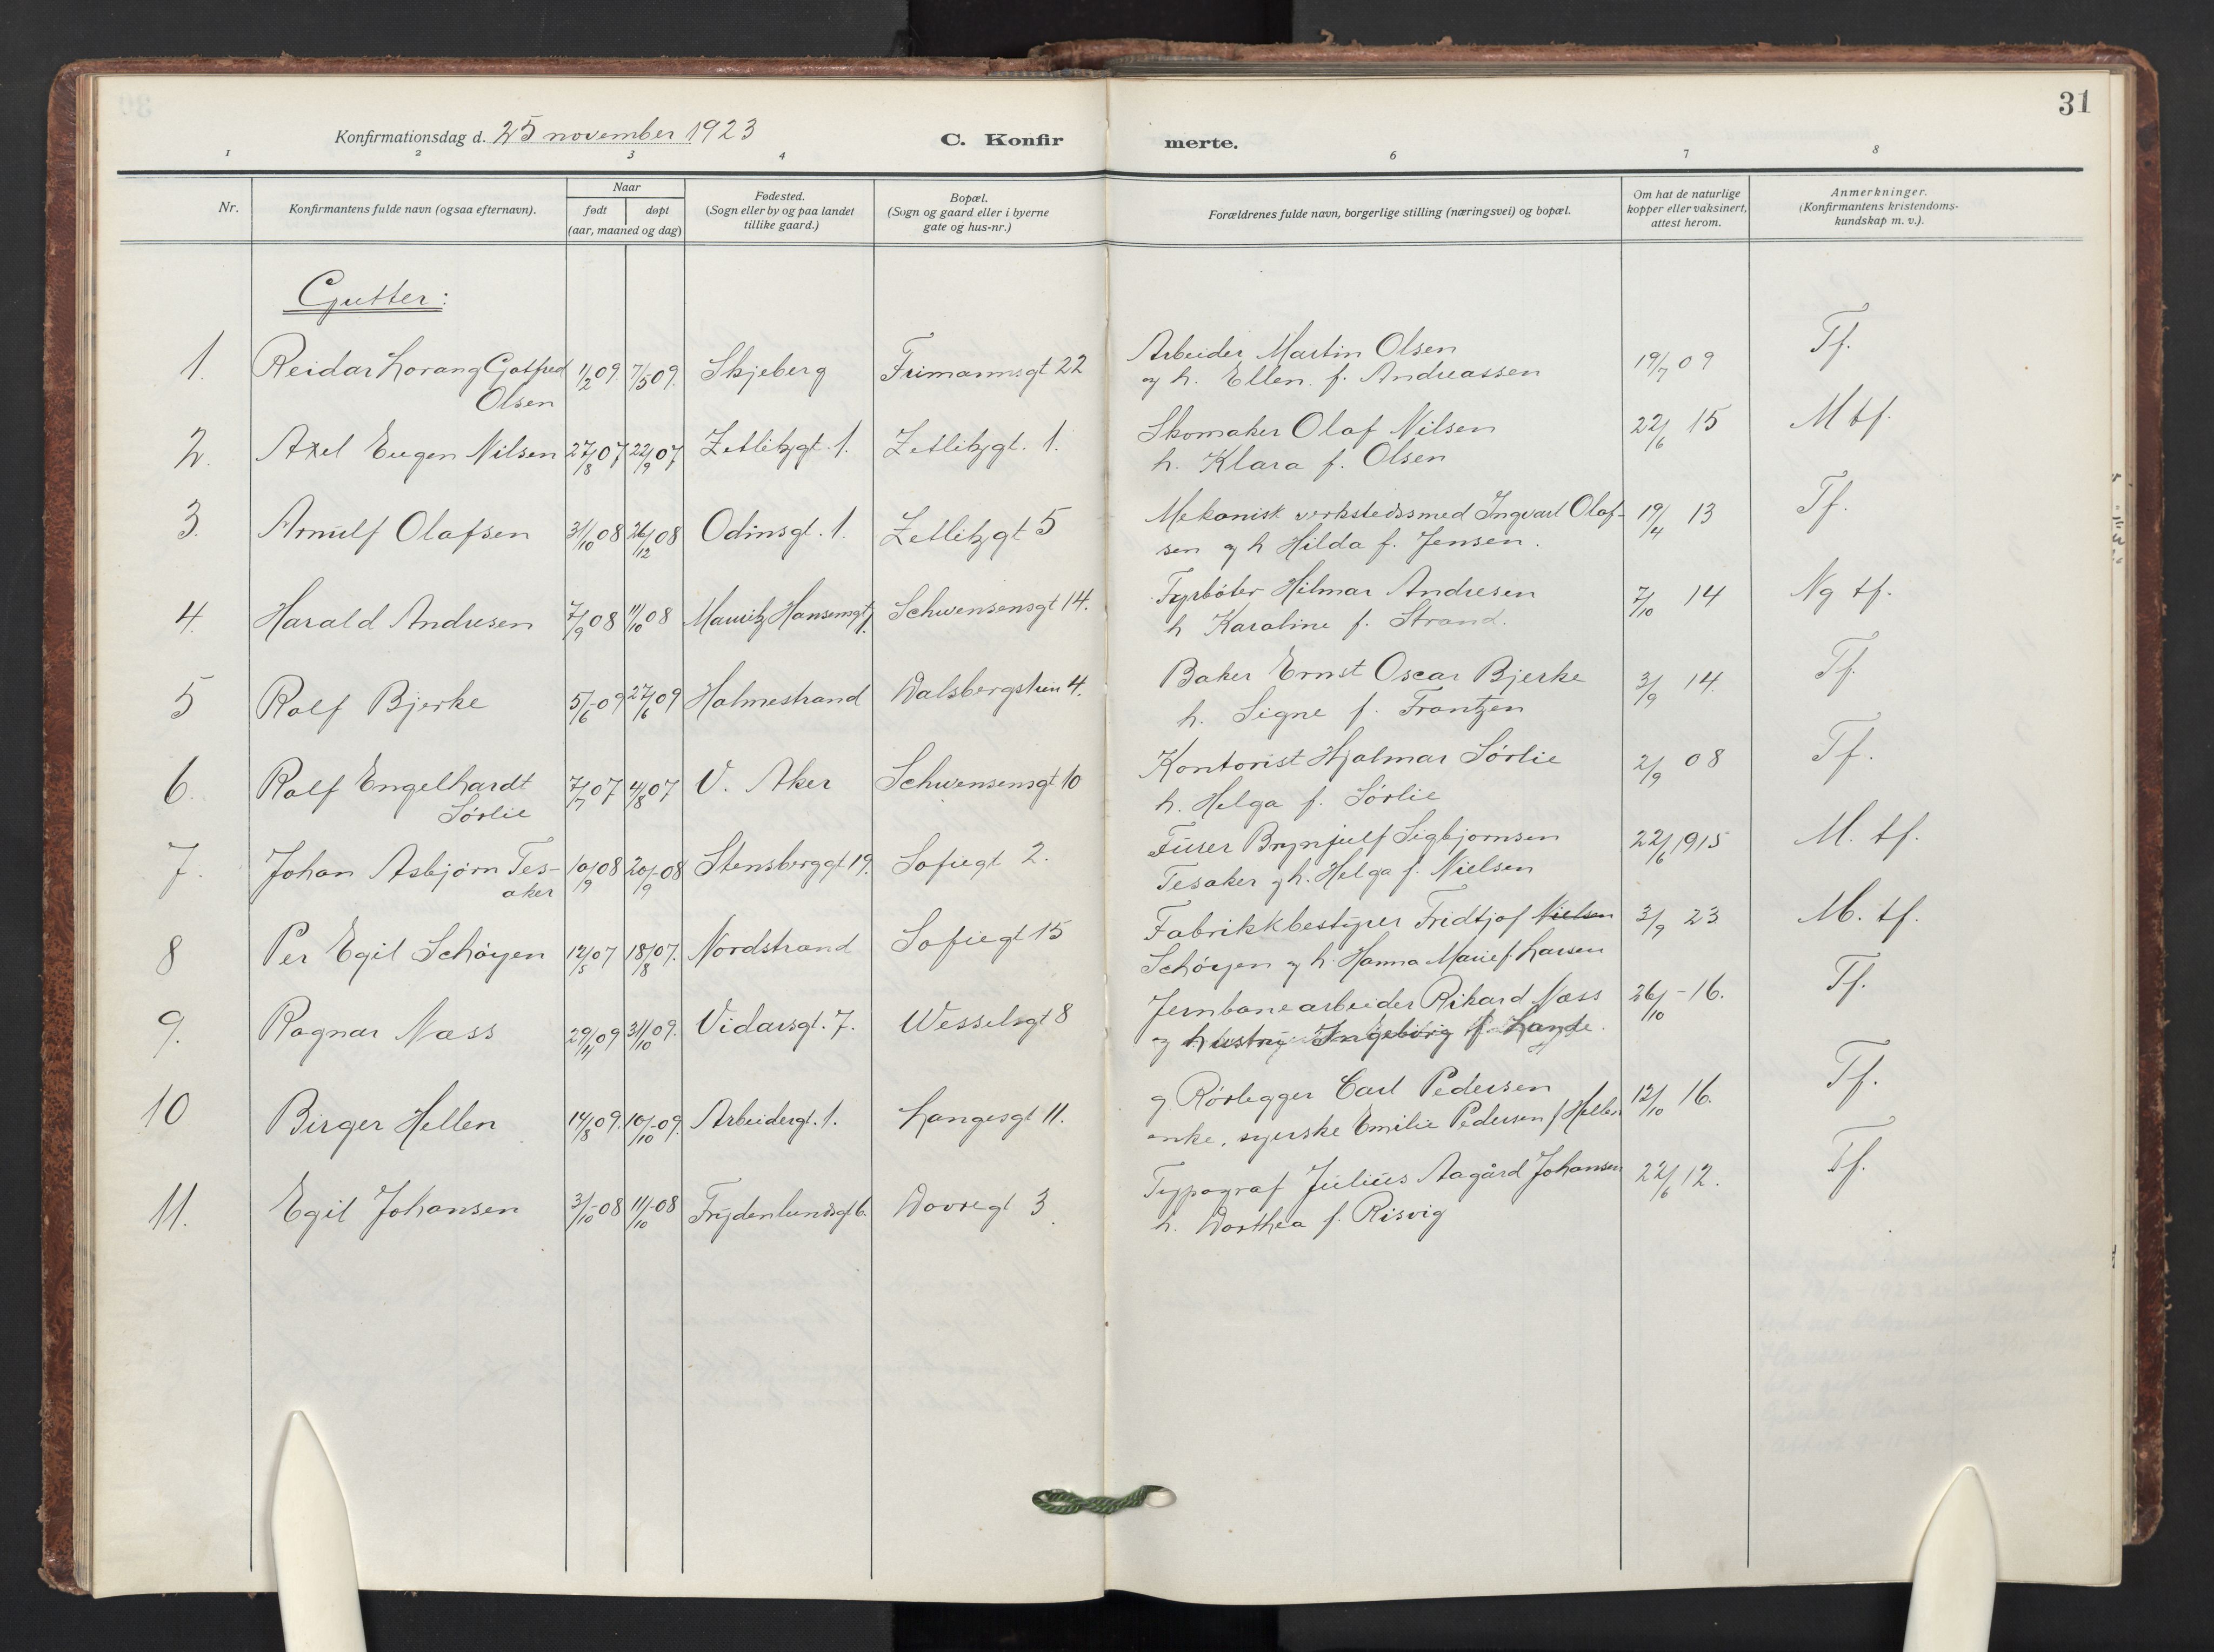 31
Konfirmationsdag d. 25 november 1923
C. Konfir merte.
1 2 3 4 6 7 8
Nr.
Konfirmantens fulde navn (ogsaa efternavn).
Naar
født døpt
(aar, maaned og dag)
Fødested.
(Sogn eller by og paa landet
tillike gaard.)
Bopæl.
(Sogn og gaard eller i byerne
gate og hus-nr.)
Forældrenes fulde navn, borgerlige stilling (næringsvei) og bopæl.
Om hat de naturlige
kopper eller vaksinert,
attest herom.
Anmerkninger.
(Konfirmantens kristendoms-
kundskap m. v.).
Gutter:
1. Reidar Lorang Gotfred 1/2 09. 7/5 09. Skjeberg Frimannsgt 22 Arbeider Martin Olsen 19/7 09 Tf.
Olsen og h. Ellen f. Andreassen
2. Axel Eugen Nilsen 27/8 07 22/9 07 Zetlitzgt. 1. Zetlitzgt. 1. Skomaker Olaf Nilsen 22/6 15 M tf.
h. Klara f. Olsen
3. Arnulf Olafsen 31/10 08 26/12 08 Odinsgt. 1. Zetlitzgt 5 Mekanisk verkstedssmed Ingvart Olaf- 19/4 13 Tf.
sen og h Hilda f. Jensen.
4. Harald Andresen 7/9 08 11/10 08 Mauritz Hansensgt 1. Schwensensgt 14. Fyrbøter Hilmar Andresen 7/10 14 Ng tf.
h Karoline f. Strand.
5 Rolf Bjerke 5/6-09 27/6 09 Holmestrand Dalsbergstien 4. Baker Ernst Oscar Bjerke 3/9 14. Tf.
h. Signe f. Frantzen
6. Rolf Engelhardt 7/7 07 4/8 07 V. Aker Schwensensgt 10 Kontorist Hjalmar Sörlie 2/9 08 Tf.
Sörlie h. Helga f. Sörlie
7. Johan Asbjørn Tes- 10/9 08 20/9-08 Stensberggt 19. Sofiegt 2. Furer Brynjulf Sigbjørnsen 22/6 1915 M. tf.
aker Tesaker og h. Helga f. Nielsen
8 Per Egil Schøyen 12/5 07 18/8 07. Nordstrand Sofiegt 15 Fabrikkbestyrer Fridtjof Nielsen 3/9 23 M. tf.
Schøyen og h. Hanna Marie f. Larsen
9. Ragnar Næss 29/4 09 31/10 09. Vidarsgt. 7. Wesselsgt 8 Jernbanearbeider Rikard Næss 26/10-16. Tf.
og hustru Ingeborg f. Lande.
10 Birger Hellen 14/8 09. 10/10-09. Arbeidergt. 1. Langesgt 11. g Rörlegger Carl Pedersen 12/10 16. Tf.
enke, syerske Emilie Pedersen f Hellen
11. Egil Johansen 3/10-08 11/10-08 Frydenlundsgt 6. Dovregt 3 Typograf Julius Aagård Johansen 22/6 12. Tf.
h. Dorthea f. Risvig